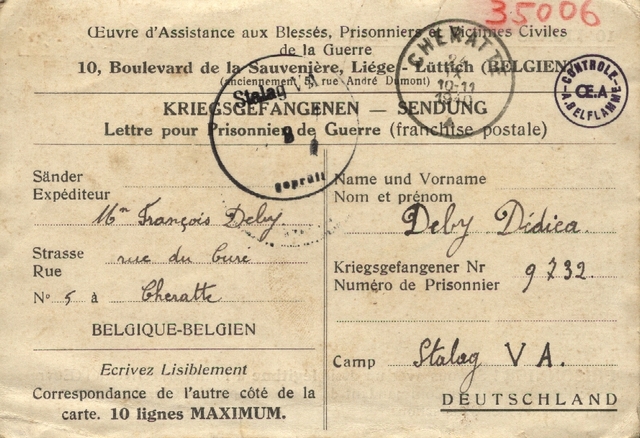 35006
Œuvre d'Assistance aux Blessés, Prisonniers et Victimes Civiles
de la Guerre
10, Boulevard de la Sauvenière, Liége-Lüttich (BELGIEN)
(anciennement 5, rue André Dumont)
CHERATTE
10-11
CONTROLE
Œ.A
A.BELFLAMME
Stalag V A
9
geprüft
KRIEGSGEFANGENEN — SENDUNG
Lettre pour Prisonnier de Guerre (franchise postale)
Sänder
Expéditeur
Mr François Deby
Strasse
Rue
rue du Curé
N° 5 à Cheratte
BELGIQUE-BELGIEN
Ecrivez Lisiblement
Correspondance de l'autre côté de la
carte. 10 lignes MAXIMUM.
Name und Vorname
Nom et prénom
Deby Dédica.
Kriegsgefangener Nr
Numéro de Prisonnier
9732.
Camp Stalag V A.
DEUTSCHLAND